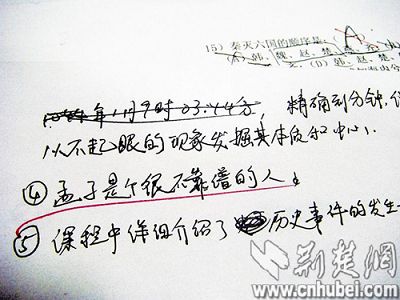 15）秦灭六国的顺序是：（A）
(A) 韩、魏、赵、楚
(D) 韩、赵、楚
年 月9时03:44分，精确到分钟,
从不起眼的现象发掘其本质和中心,
④ 孟子是个很不靠谱的人。
⑤ 课程中详细介绍了 历史事件的发生
荆楚网
www.cnhubei.com